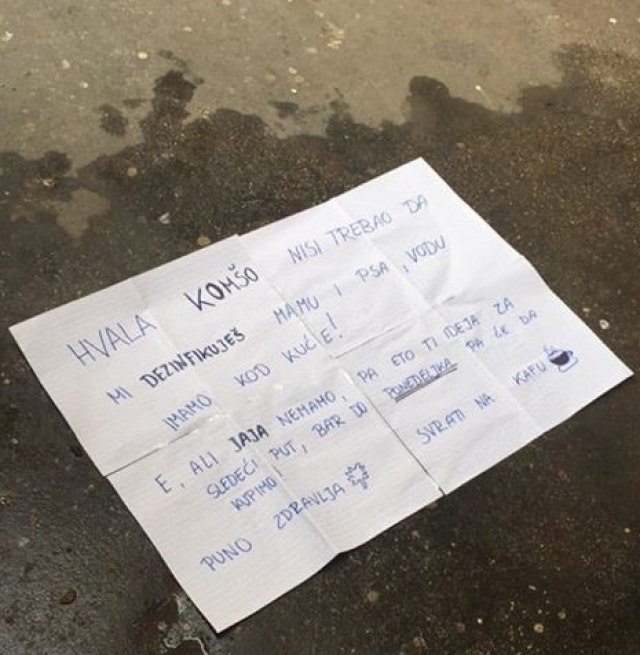 HVALA KOMŠO NISI TREBAO DA
MI DEZINFIKUJEŠ MAMU I PSA, VODU
IMAMO KOD KUĆE!
E, ALI JAJA NEMAMO, PA ETO TI IDEJA ZA
SLEDEĆI PUT, BAR DO PONEDELJKA PA ĆE DA
KUPIMO SVRATI NA KAFU
PUNO ZDRAVLJA